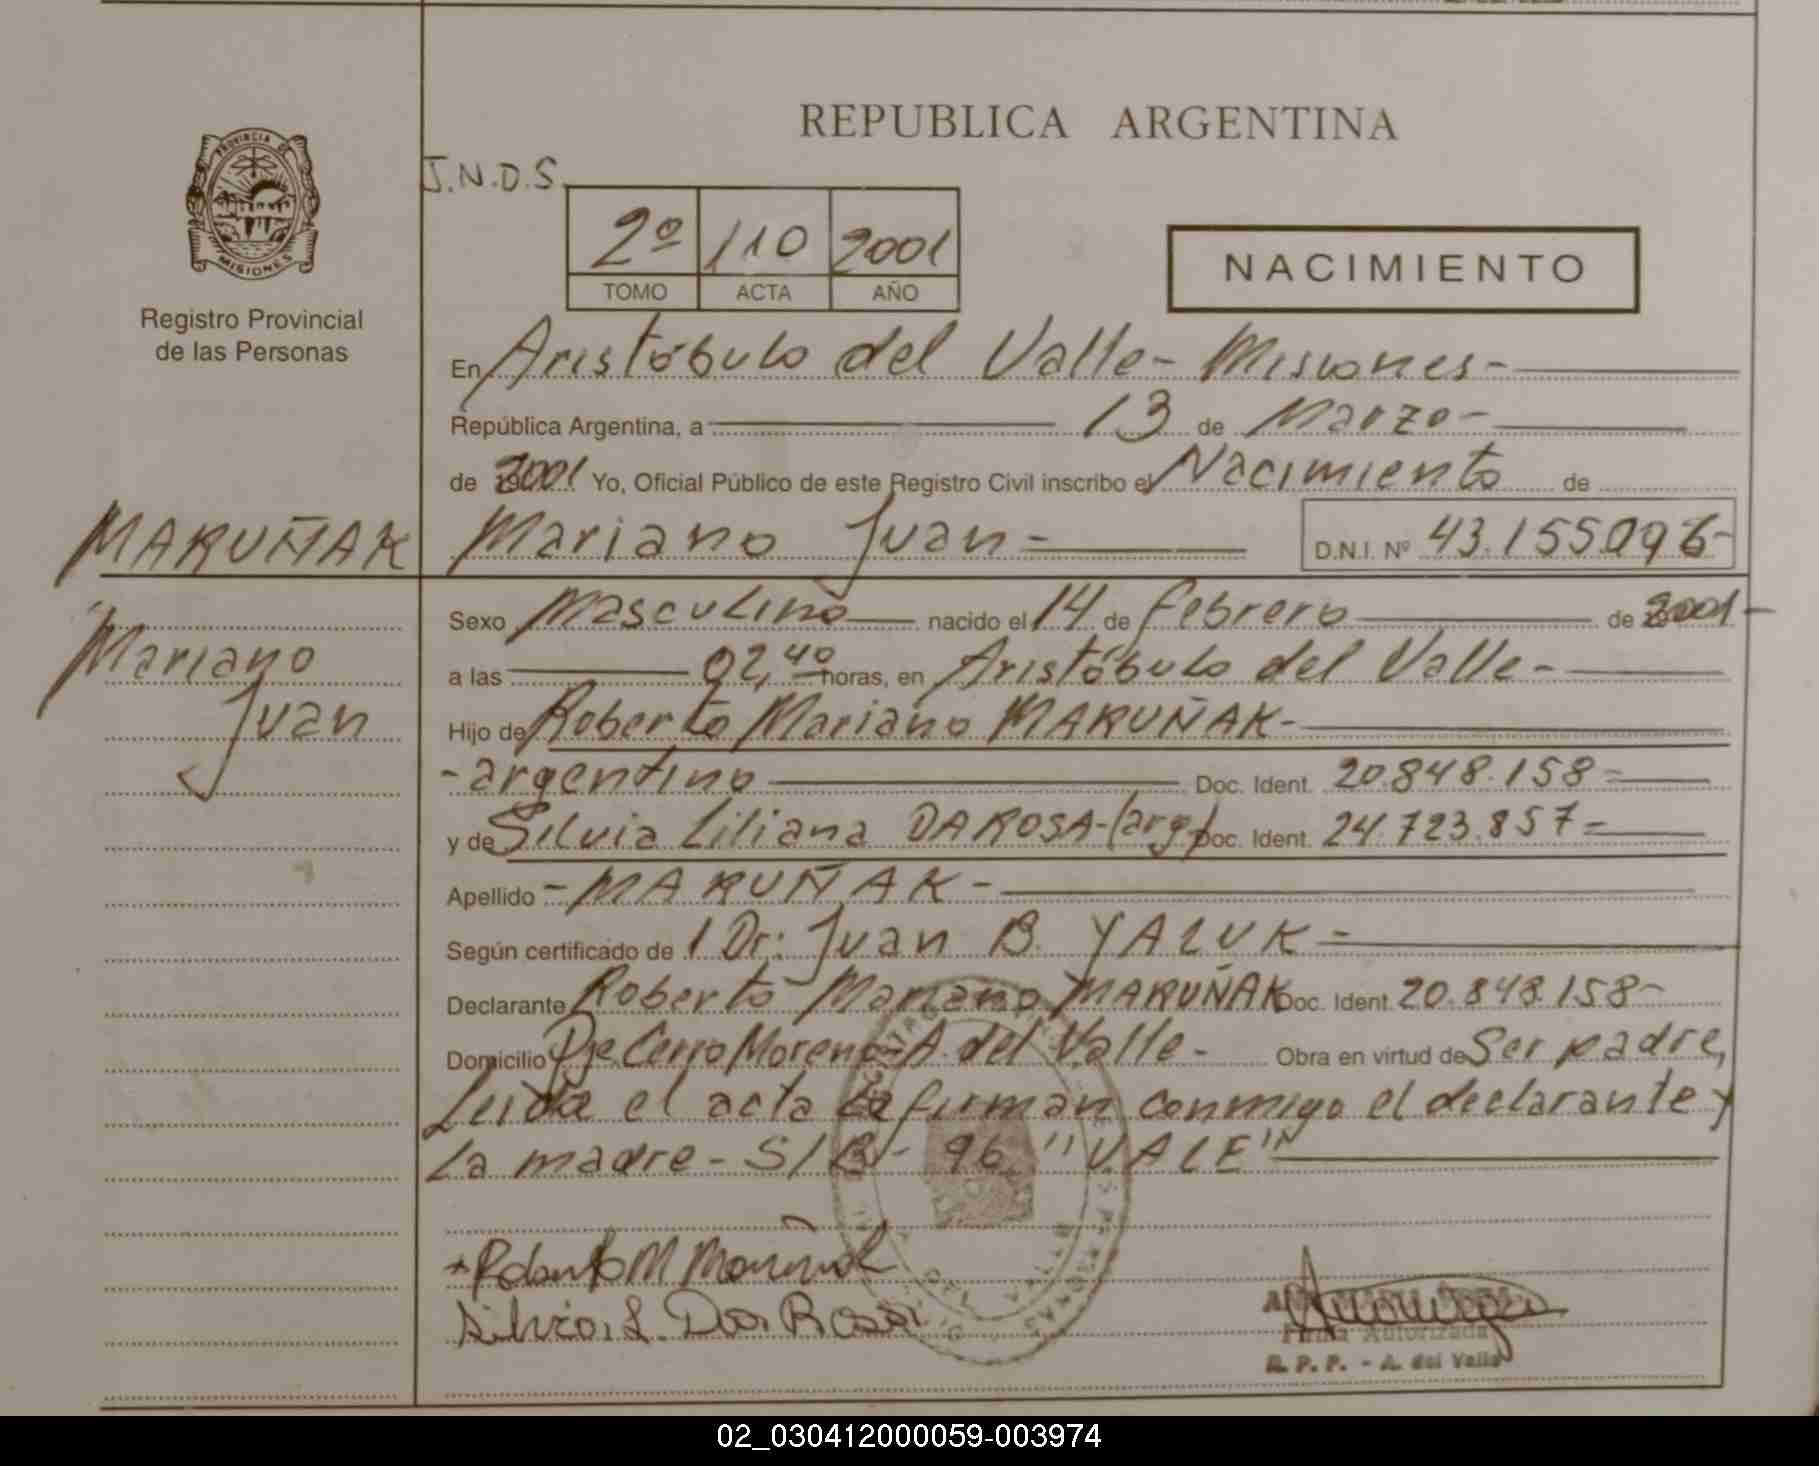 REPUBLICA ARGENTINA
PROVINCIA DE
MISIONES
Registro Provincial
de las Personas
J.N.D.S.
2º 110 2001
TOMO ACTA AÑO
NACIMIENTO
En Aristóbulo del Valle- Misiones-
República Argentina, a 13 de Marzo-
de 2001 Yo, Oficial Público de este Registro Civil inscribo el Nacimiento de
MARUÑAK
Mariano Juan-
D.N.I. Nº 43.155.096-
Mariano
Juan
Sexo Masculino nacido el 14 de febrero de 2001-
a las 02,40 horas, en Aristóbulo del Valle-
Hijo de Roberto Mariano MARUÑAK-
-argentino Doc. Ident. 20.848.158=
y de Silvia Liliana DA ROSA-(arg) Doc. Ident. 24.723.857=
Apellido -MARUÑAK-
Según certificado de 1 Dr: Juan B. YALUK-
Declarante Roberto Mariano MARUÑAK Doc. Ident. 20.848.158-
Domicilio Pje Cerro Moreno-A. del Valle- Obra en virtud de Ser padre,
Leida el acta la firman conmigo el declarante y
La madre- S/B- 96 "VALE"
Roberto M Maruñak
Silvia. L. Da Rosa
Firma Autorizada
R. P. P. - A. del Valle
02_030412000059-003974